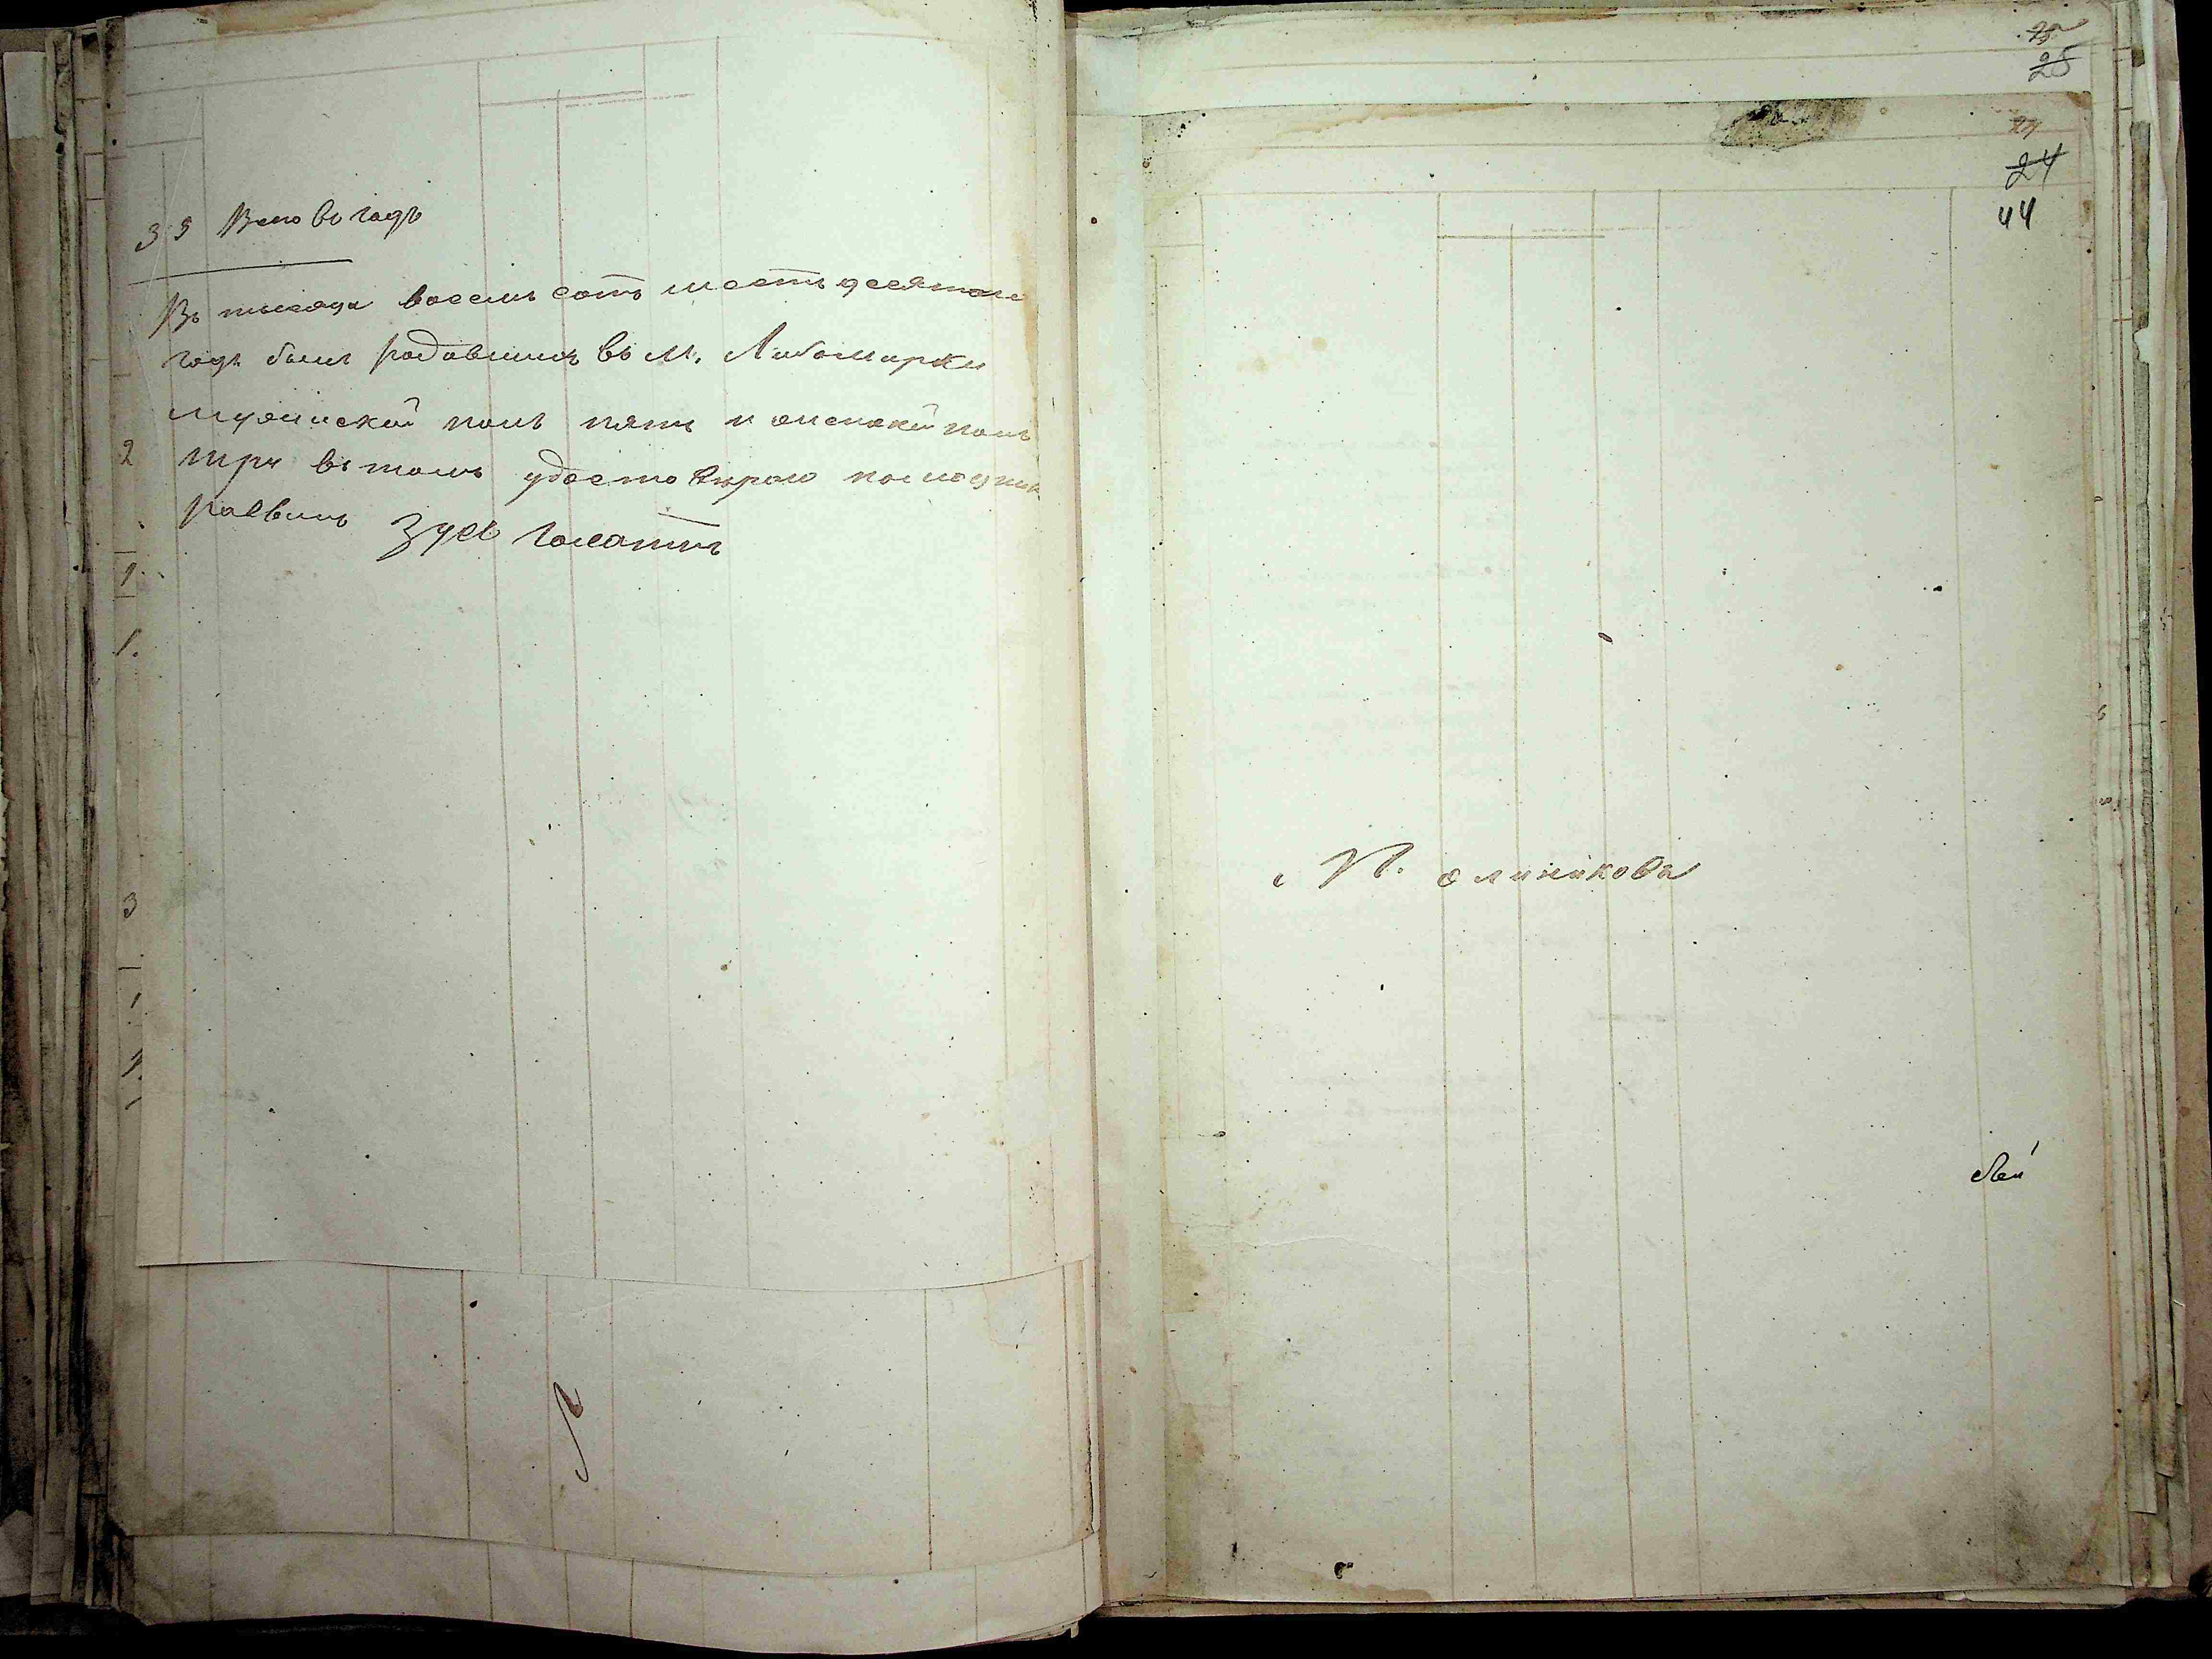 3 5 Всего въ годъ
Въ тысяча восемь сотъ шестьдесятомъ
годъ были родавшихъ въ М. Любомирки
мужиской полъ пять и женской полъ
три въ томъ удостовѣраю помощник
раввинъ
2
1.
1.
3
1
1
1.
25
24
44
П. олиникова